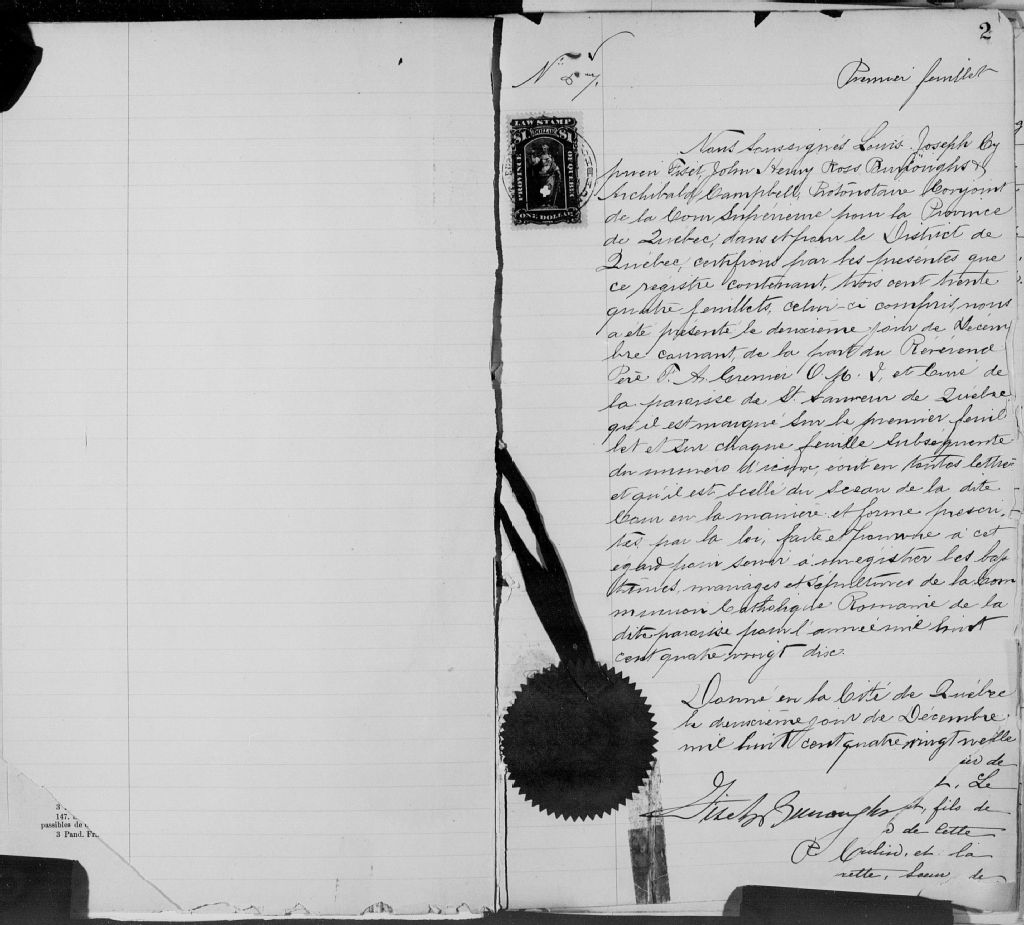 2
Premier feuillet
LAW STAMP
$1 $1
PROVINCE OF QUEBEC
ONE DOLLAR
Nous soussignés Louis Joseph Cy
prien Fiset, John Henry Ross Burroughs &
Archibald Campbell, Protonotaire Conjoint
de la Cour Supérieure pour la Province
de Québec, dans et pour le District de
Québec, certifions par les présentes que
ce registre contenant, trois cent trente
quatre feuillets, celui-ci compris, nous
a été présenté le deuxième jour de Décem
bre courant, de la part du Révérend
Père F. A. Grenier O. M. I, et Curé de
la paroisse de St. Sauveur de Québec
qu'il est marqué sur le premier feuil
let et sur chaque feuille subséquente
du numéro d'iceux, écrit en toutes lettres
et qu'il est scellé du Sceau de la dite
Cour en la manière et forme prescri,
tes, par la loi, faite et pourvue à cet
égard pour servir à enregistrer les bap
têmes, mariages et sépultures de la Com
munion Catholique Romaine de la
dite paroisse pour l'année mil huit
cent quatre vingt dix.
Donné en la Cité de Québec
le deuxième jour de Décembre
mil huit cent quatre vingt neuf
Fiset Burroughs
fils de
de cette
et la
soeur de
3
147.
passibles de
3 Pand. Fr.